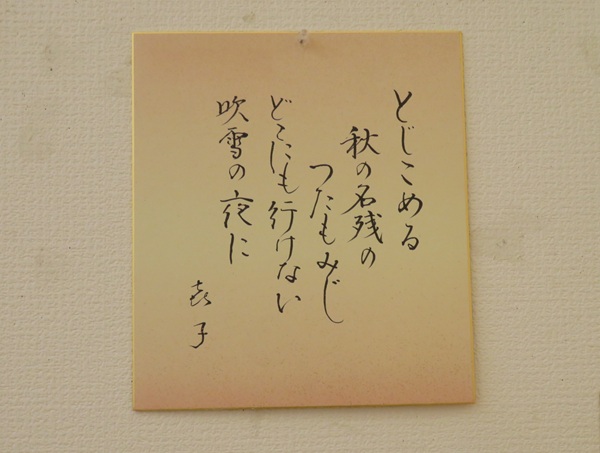 とじこめる
秋の名残の
つたもみじ
どこにも行けない
吹雪の夜に
喜子